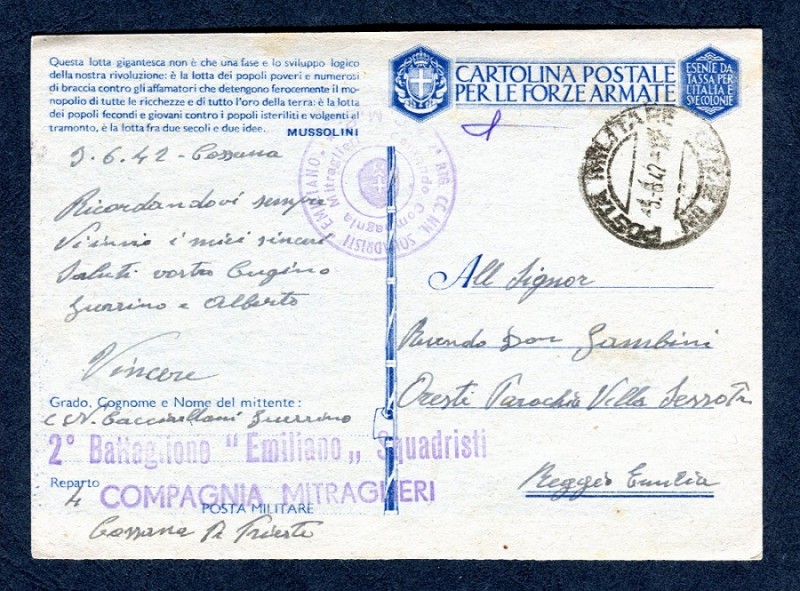 Questa lotta gigantesca non è che una fase e lo sviluppo logico
della nostra rivoluzione: è la lotta dei popoli poveri e numerosi
di braccia contro gli affamatori che detengono ferocemente il mo-
nopolio di tutte le ricchezze e di tutto l'oro della terra: è la lotta
dei popoli fecondi e giovani contro i popoli isteriliti e volgenti al
tramonto, è la lotta fra due secoli e due idee.
MUSSOLINI
CARTOLINA POSTALE
PER LE FORZE ARMATE
ESENTE DA
TASSA PER
L'ITALIA E
SVE COLONIE
POSTA MILITARE
SQUADRISTI EMILIANO
Comando Compagnia Mitraglieri
3.6.42 - Cossana
Ricordandovi sempre
i miei sinceri
Saluti vostro Cugino
Guerrino e Alberto
Vincere
All Signor
Reverendo Don Gambini
Oreste Parochia Villa
Reggio Emilia
Grado, Cognome e Nome del mittente:
C N. Guerrino
2° Battaglione "Emiliano" Squadristi
Reparto
4 COMPAGNIA MITRAGLIERI
POSTA MILITARE
Cossana Trieste